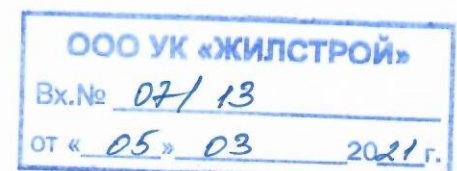 ООО УК «ЖИЛСТРОЙ»
Вх.№ 07/13
от «05» 03 2021 г.